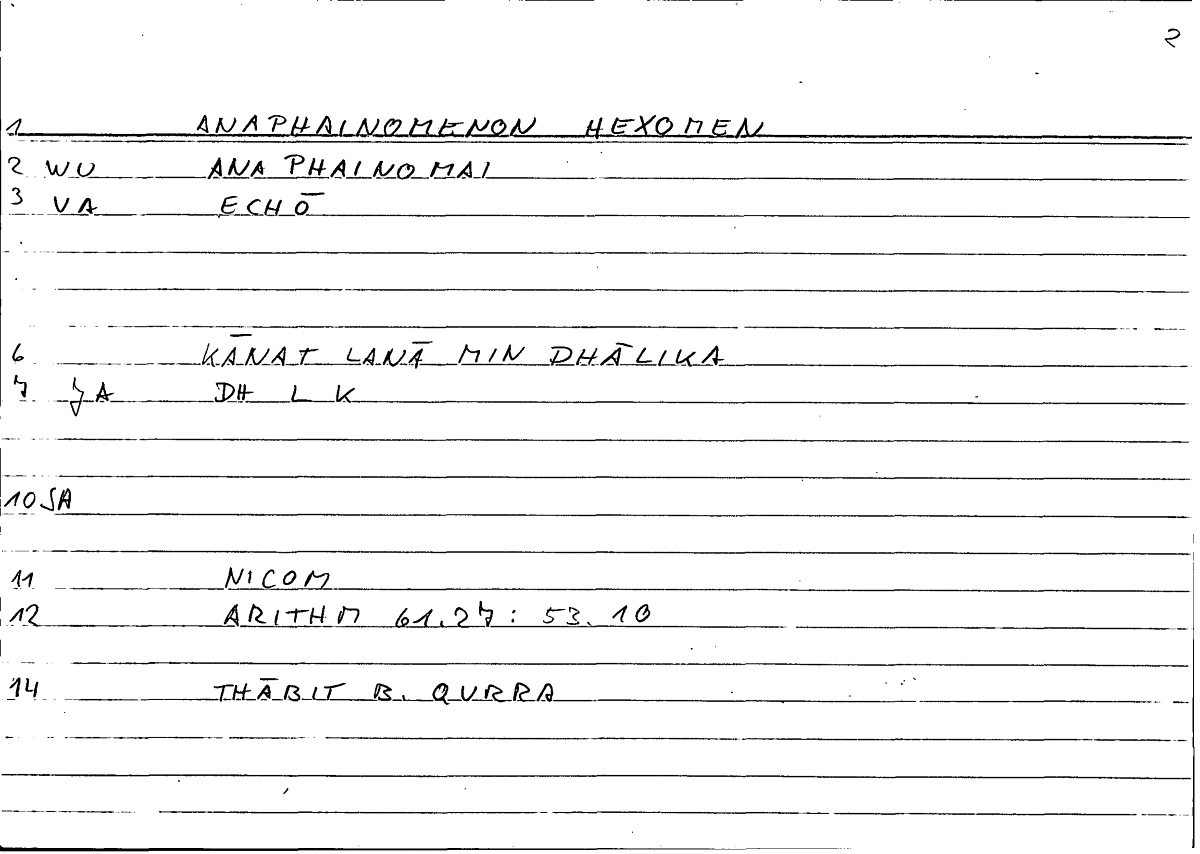 2
1 ANAPHAINOMENON HEXOMEN
2 WU ANAPHAINOMAI
3 VA ECHŌ
6 KĀNAT LANĀ MIN DHĀLIKA
7 JA DH L K
10 SA
11 NICOM
12 ARITHM 61.27 : 53.10
14 THĀBIT B. QURRA